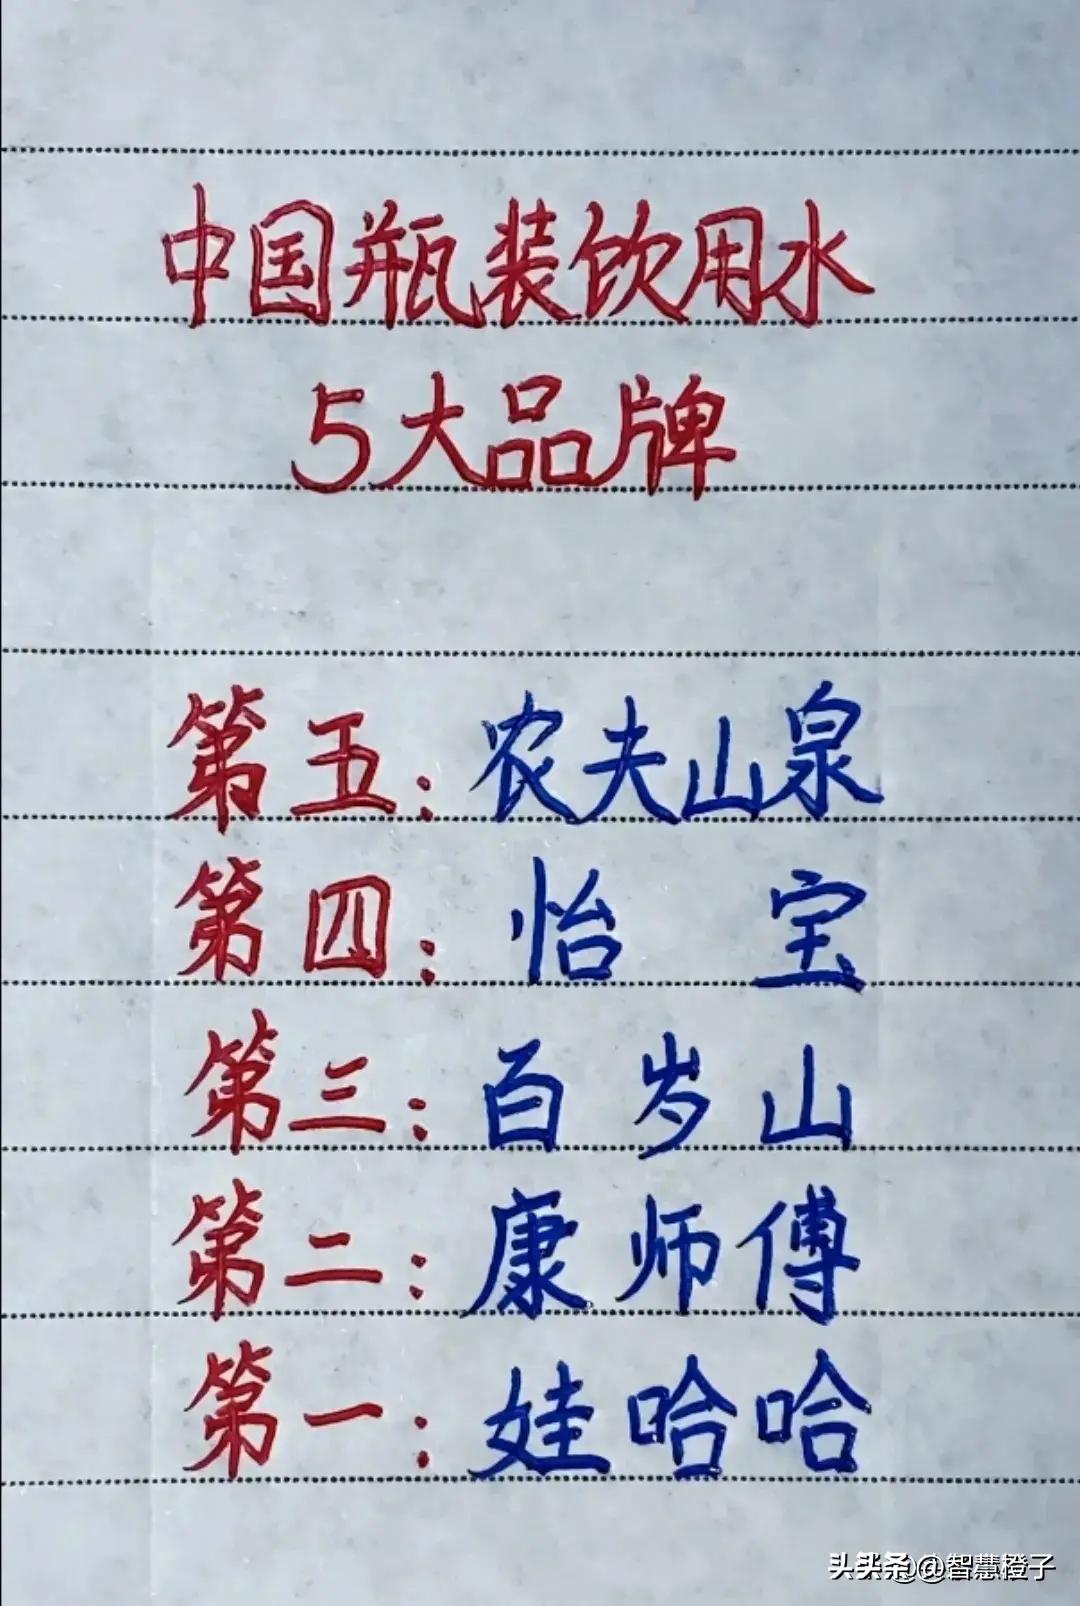 中国瓶装饮用水
5大品牌
第五：农夫山泉
第四：怡宝
第三：百岁山
第二：康师傅
第一：娃哈哈
头条@智慧橙子